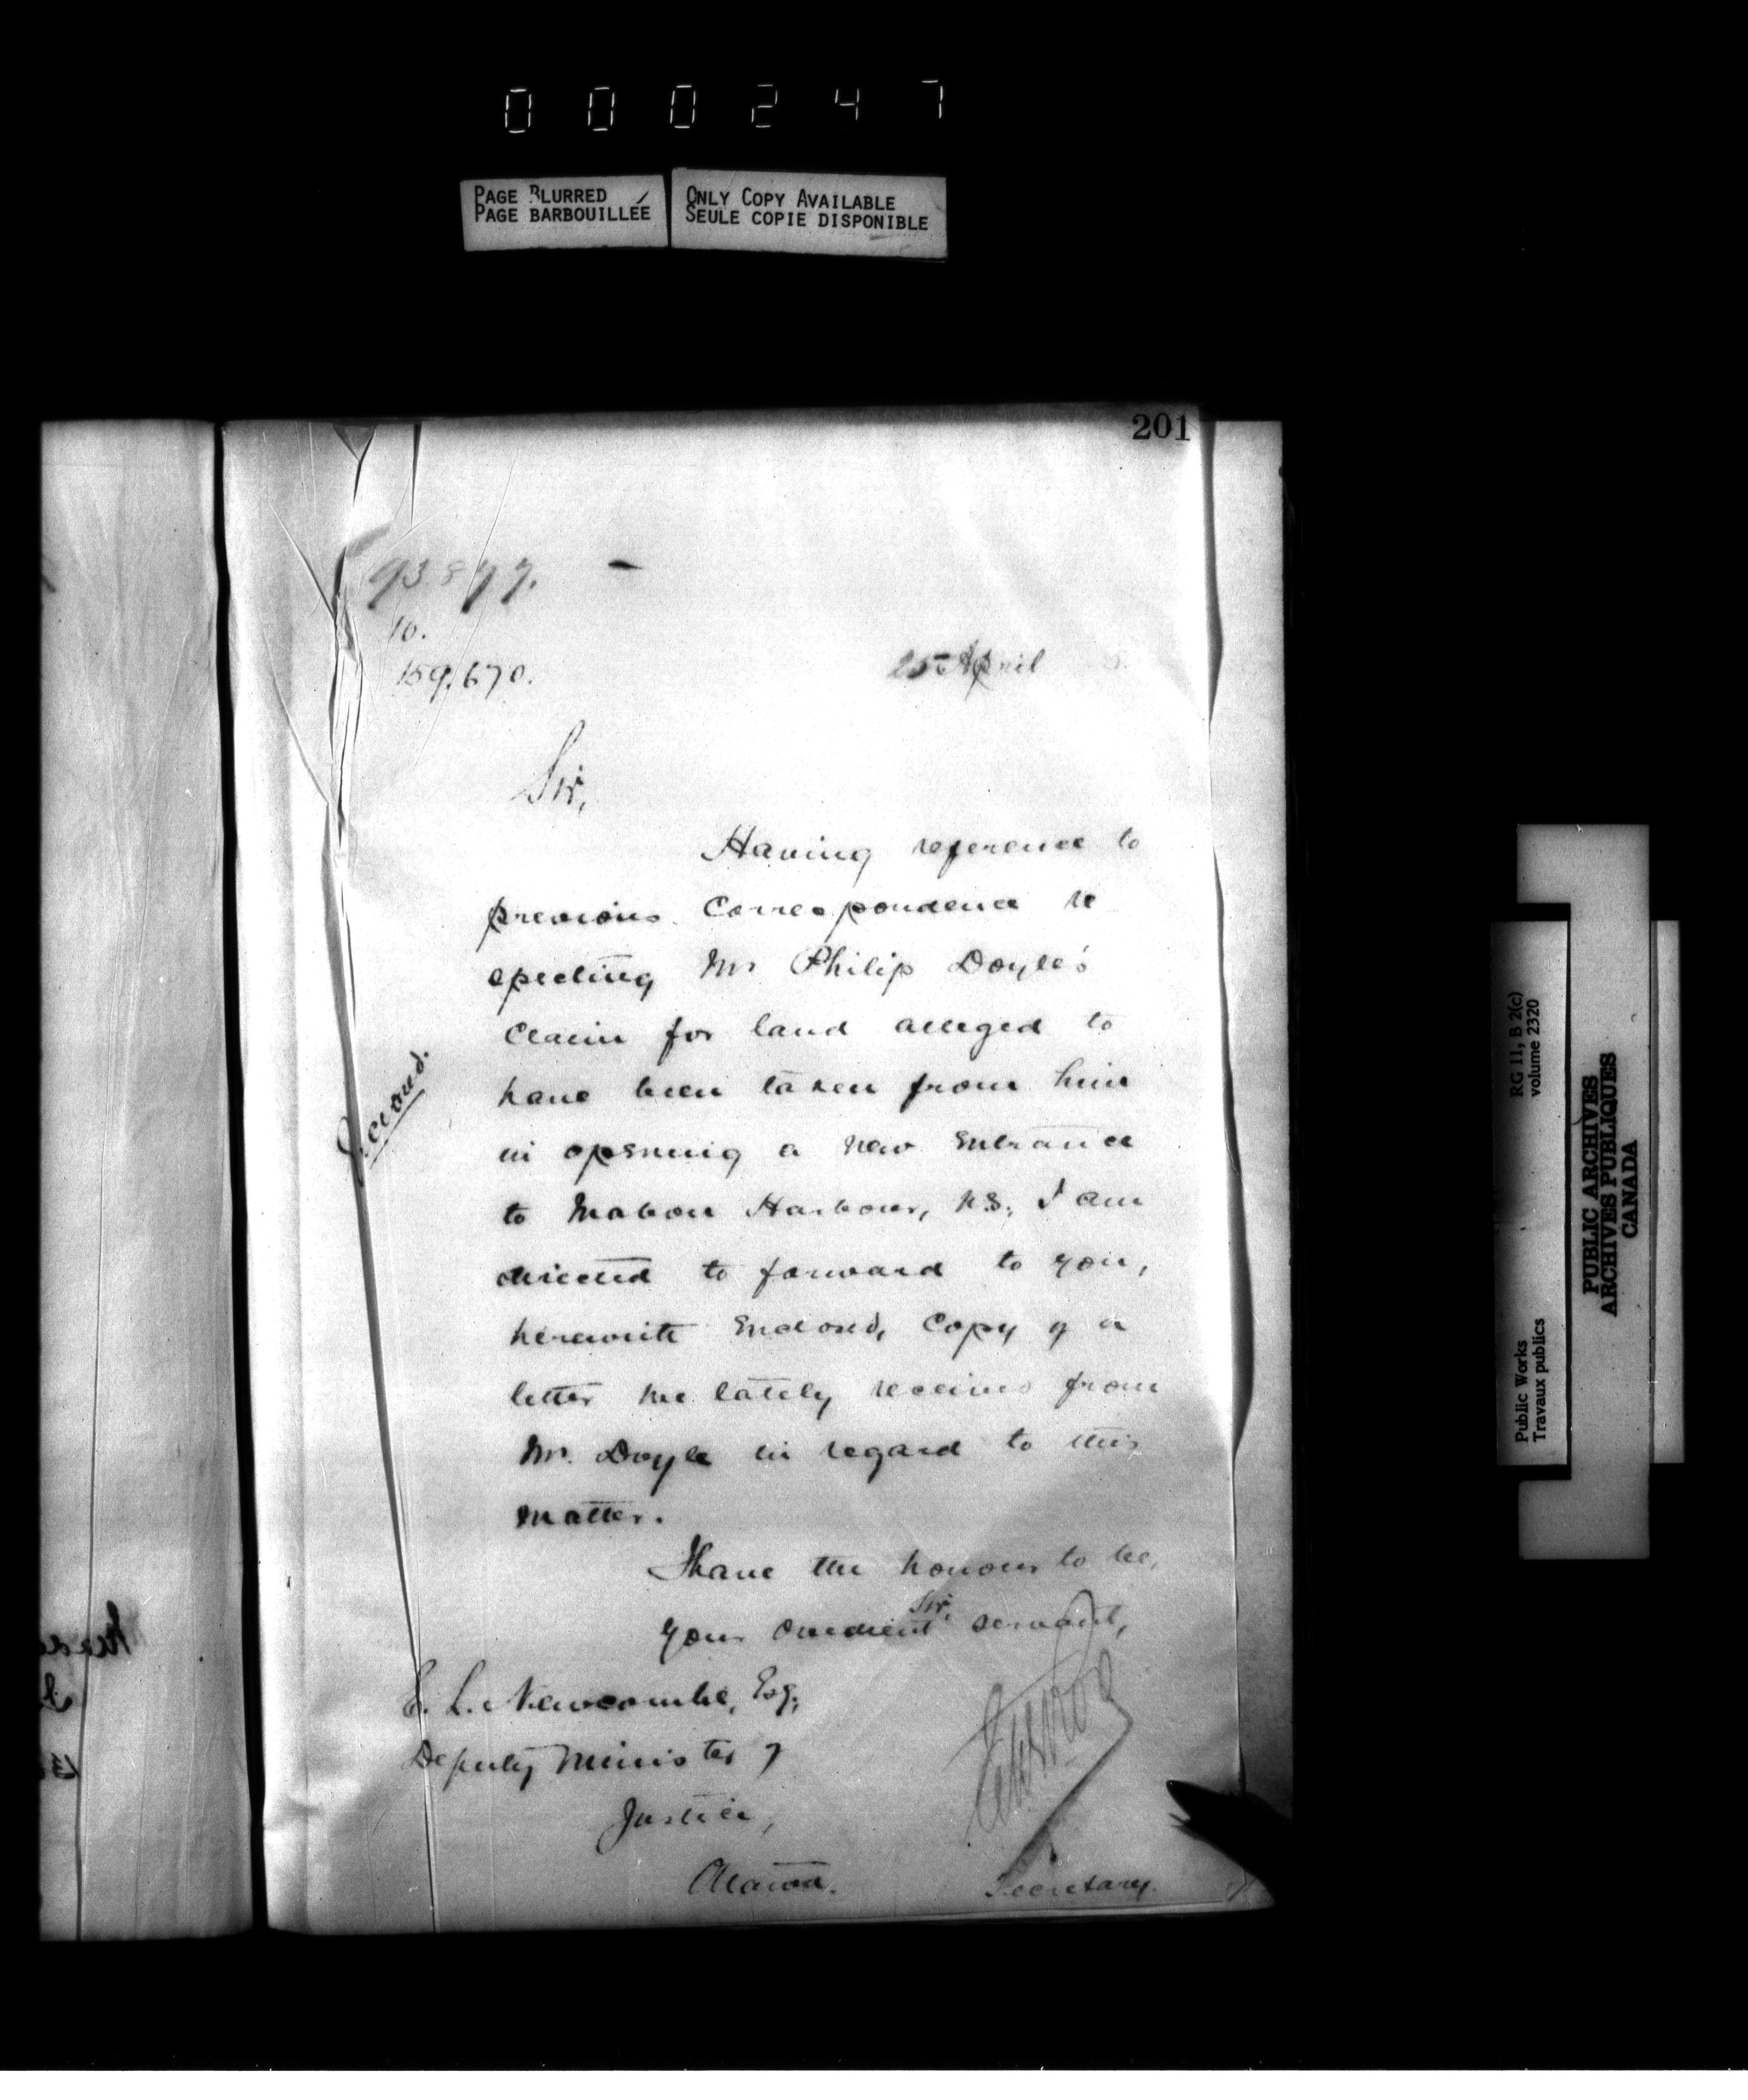 000247
PAGE BLURRED
PAGE BARBOUILLÉE
ONLY COPY AVAILABLE
SEULE COPIE DISPONIBLE
201
93877.
10.
159,670.
25th April
Sir,
Having reference to
previous Correspondence re
specting Mr Philip Doyle's
Claim for land alleged to
have been taken from him
in opening a new Entrance
to Mabou Harbour, N.S, I am
directed to forward to you,
herewith Enclosed, Copy of a
letter lately received from
Mr. Doyle in regard to this
matter.
I have the honour to be,
Sir,
your obedient servant,
E. L. Newcombe, Esq,
Deputy Minister of
Justice,
Ottawa.
Secretary.
RG 11, B 2(c)
volume 2320
Public Works
Travaux publics
PUBLIC ARCHIVES
ARCHIVES PUBLIQUES
CANADA